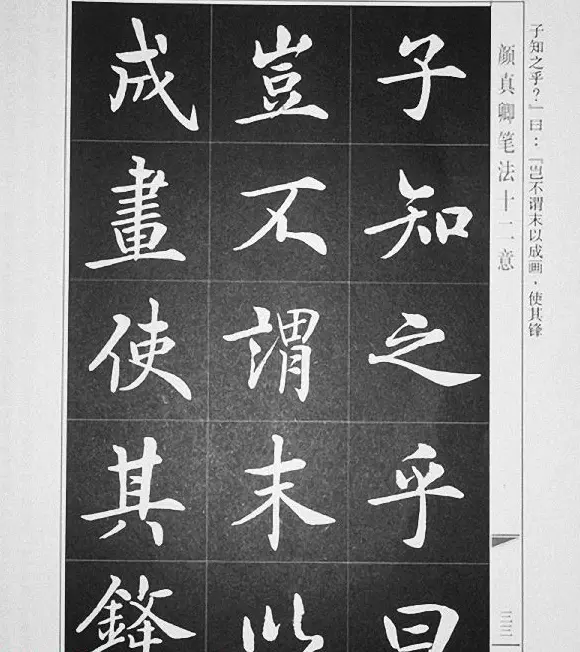 子知之乎？』曰：『岂不谓末以成画，使其锋
颜真卿笔法十二意
三三
子知之乎曰
豈不謂末以
成畫使其鋒